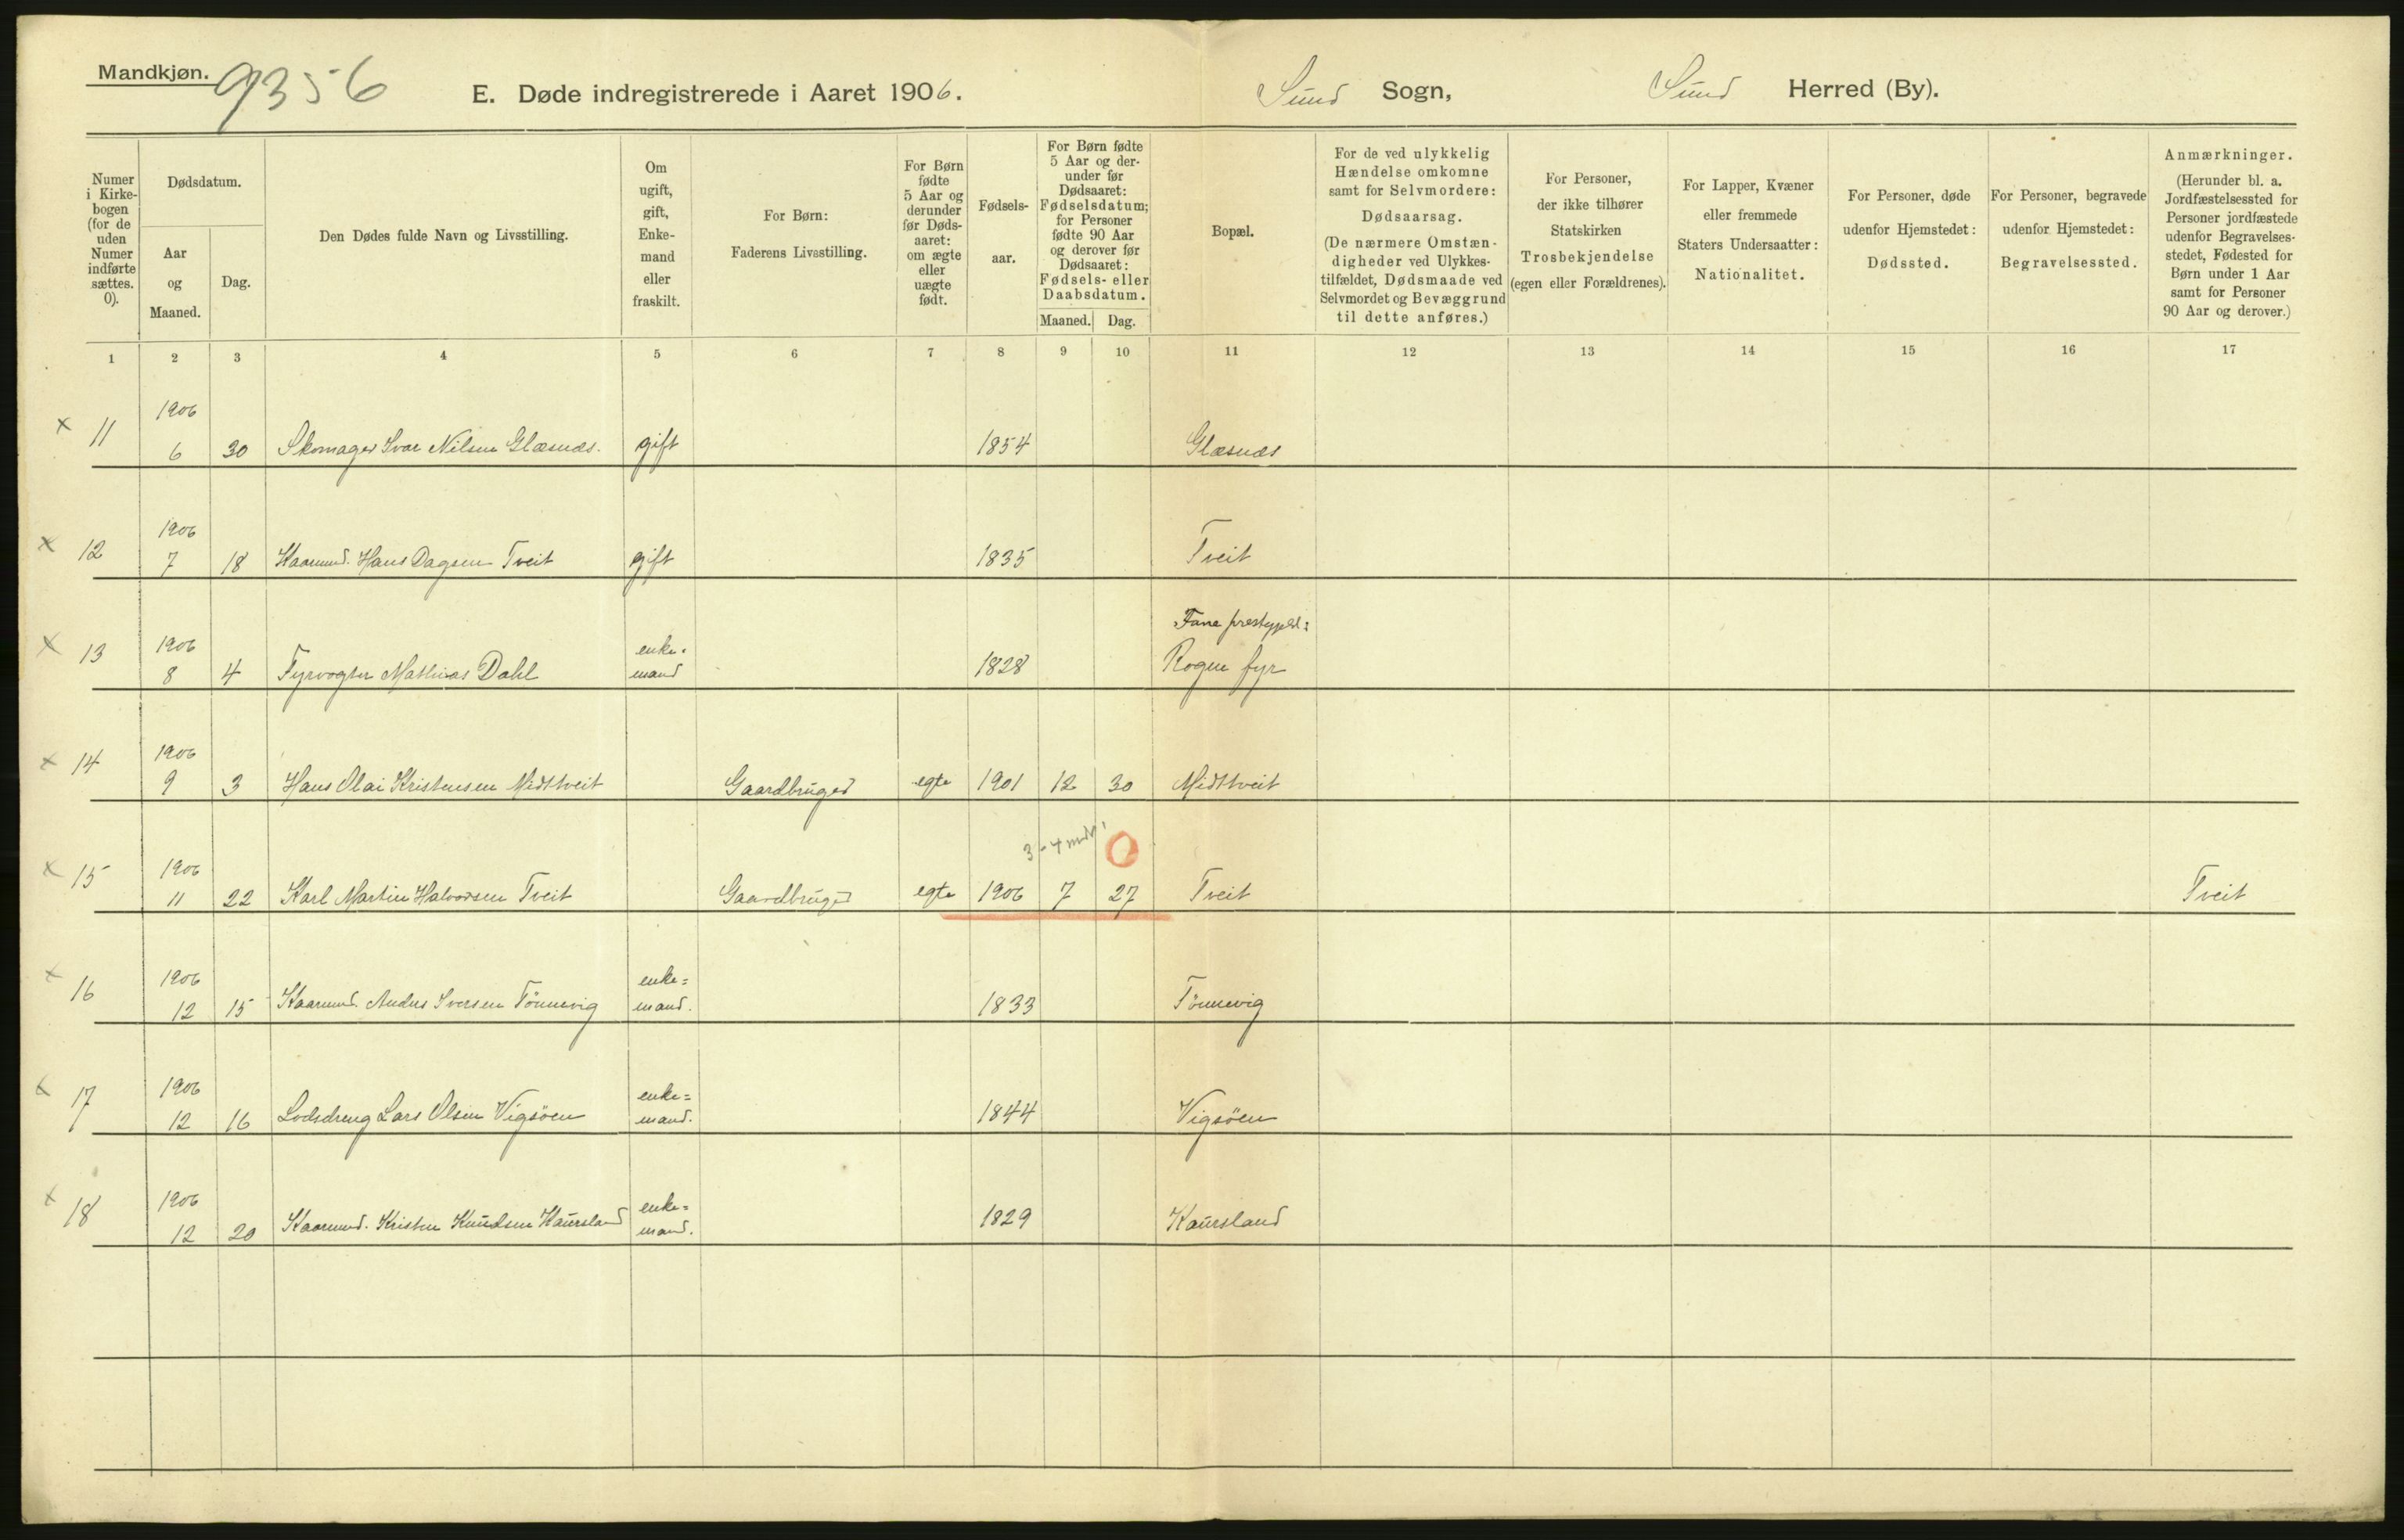 Mandkjøn.
9356
E. Døde indregistrerede i Aaret 1906.
Sund Sogn,
Sund Herred (By).
Numer
i Kirke-
bogen
(for de
uden
Numer
indførte
sættes.
0).
Dødsdatum.
Aar
og
Maaned.
Dag.
Den Dødes fulde Navn og Livsstilling.
Om
ugift,
gift,
Enke-
mand
eller
fraskilt.
For Børn:
Faderens Livsstilling.
For Børn
fødte
5 Aar og
derunder
før Døds-
aaret:
om ægte
eller
uægte
født.
Fødsels-
aar.
For Børn fødte
5 Aar og der-
under før
Dødsaaret:
Fødselsdatum;
for Personer
fødte 90 Aar
og derover før
Dødsaaret:
Fødsels- eller
Daabsdatum.
Maaned. Dag.
Bopæl.
For de ved ulykkelig
Hændelse omkomne
samt for Selvmordere:
Dødsaarsag.
(De nærmere Omstæn-
digheder ved Ulykkes-
tilfældet, Dødsmaade ved
Selvmordet og Bevæggrund
til dette anføres.)
For Personer,
der ikke tilhører
Statskirken
Trosbekjendelse
(egen eller Forældrenes).
For Lapper, Kvæner
eller fremmede
Staters Undersaatter:
Nationalitet.
For Personer, døde
udenfor Hjemstedet:
Dødssted.
For Personer, begravede
udenfor Hjemstedet:
Begravelsessted.
Anmærkninger.
(Herunder bl. a.
Jordfæstelsessted for
Personer jordfæstede
udenfor Begravelses-
stedet, Fødested for
Børn under 1 Aar
samt for Personer
90 Aar og derover.)
1 2 3 4 5 6 7 8 9 10 11 12 13 14 15 16 17
1906
x 11 6 30 Skomager Ivar Nilsen Glæsnæs. gift 1854 Glæsnæs
1906
x 12 7 18 Kaarmd. Hans Dagsen Tveit gift 1835 Tveit
1906 enke- Fane prestegjeld:
x 13 8 4 Fyrvogter Mathias Dahl mand 1828 Rogne fyr
1906
x 14 9 3 Hans Olai Kristensen Midttveit Gaardbruger egte 1901 12 30 Midttveit
3-4 mdr. 0
1906
x 15 11 22 Karl Martin Halvorsen Tveit Gaardbruger egte 1906 7 27 Tveit Tveit
1906 enke=
x 16 12 15 Kaarmd. Anders Iversen Tönnevig mand. 1833 Tönnevig
1906 enke=
x 17 12 16 Lodsdreng Lars Olsen Vigsöen mand. 1844 Vigsöen
1906 enke=
x 18 12 20 Kaarmd. Kristen Knudsen Kausland mand. 1829 Kausland